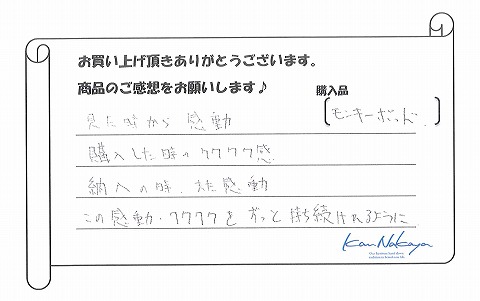 お買い上げ頂きありがとうございます。
商品のご感想をお願いします♪
購入品
[モンキーポッド]
見た時から 感動
購入した時のワクワク感
納入の時、また感動
この感動・ワクワクを ずっと持ち続けれるように
Kan Nakaya